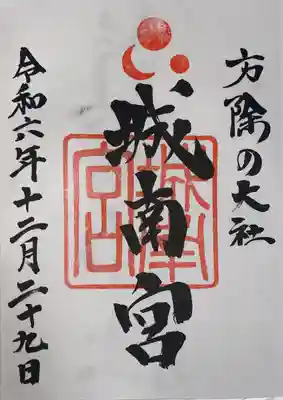 方除の大社
城南宮
城南宮印
令和六年十二月二十九日